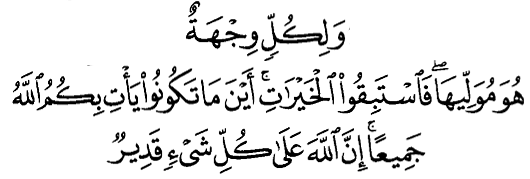 وَلِكُلٍّ وِجْهَةٌ
هُوَ مُوَلِّيهَا ۖ فَاسْتَبِقُوا الْخَيْرَاتِ ۚ أَيْنَ مَا تَكُونُوا يَأْتِ بِكُمُ اللَّهُ
جَمِيعًا ۚ إِنَّ اللَّهَ عَلَىٰ كُلِّ شَيْءٍ قَدِيرٌ